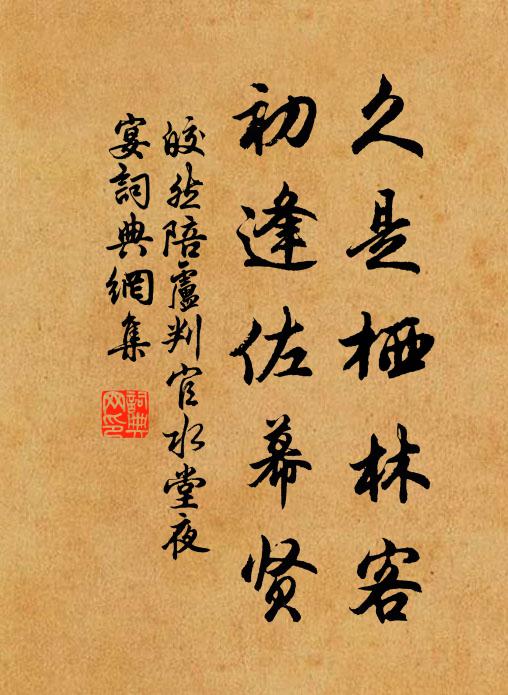 久是栖林客
初逢佐幕贤
皎然陪盧判官水堂夜
宴詞典網集
詞典
网印